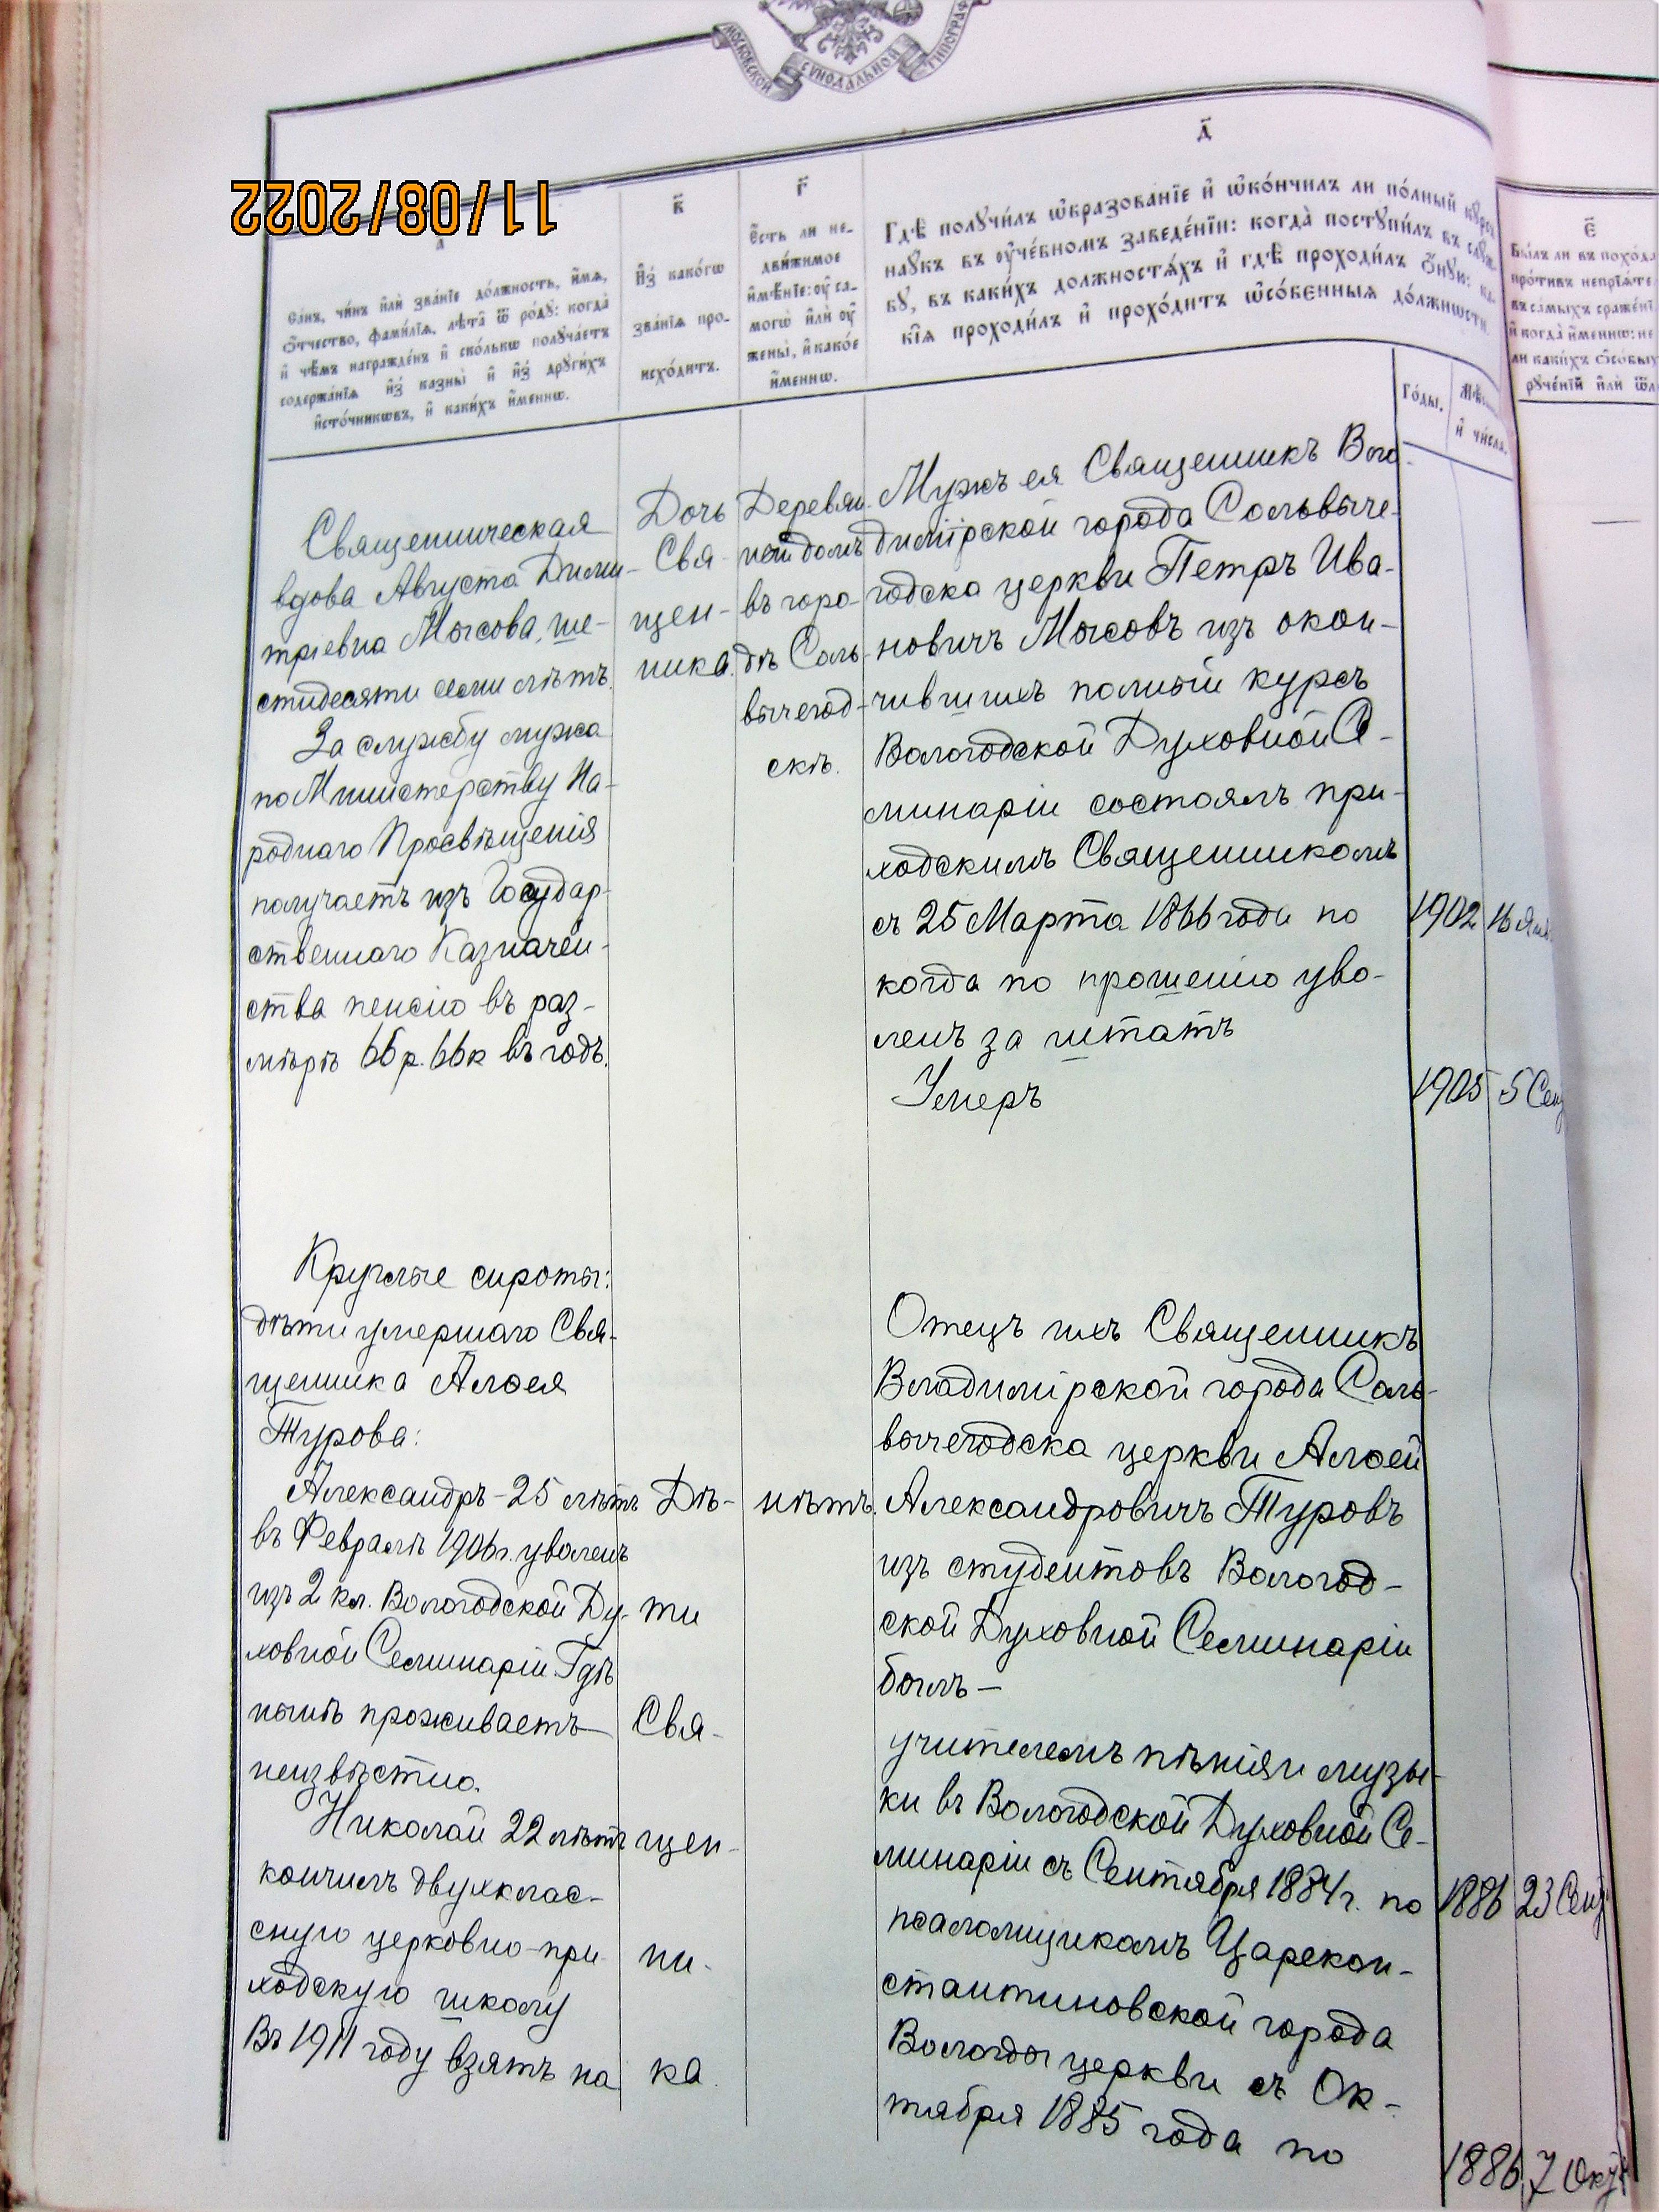 МОСКОВСКОЙ СУНОДАЛЬНОЙ ТИПОГРАФ
11/08/2022
а҃
Са́нъ, чи́нъ и҆лѝ зва́нїе до́лжность, и҆́мѧ,
ѻ҆́тчество, фами́лїѧ, лѣ́та ѿ ро́дꙋ: когда̀
и҆ чѣ́мъ награжде́нъ и҆ ско́лькѡ полꙋча́етъ
содержа́нїѧ и҆з̾ казны̀ и҆ и҆з̾ дрꙋги́хъ
и҆сто́чникѡвъ, и҆ каки́хъ и҆́меннѡ.
в҃
И҆з̾ како́гѡ
зва́нїѧ про-
исхо́дитъ.
г҃
Е҆́сть ли не-
дви́жимое
и҆мѣ́нїе: оу҆ са-
могѡ̀ и҆лѝ оу҆
жены̀, и҆ како́е
и҆́меннѡ.
д҃
Гдѣ̀ полꙋчи́лъ ѡ҆бразова́нїе и҆ ѡ҆ко́нчилъ ли по́лный кꙋрсъ
наꙋ́къ въ оу҆че́бномъ заведе́нїи: когда̀ постꙋпи́лъ въ слꙋж-
бꙋ, въ каки́хъ должностѧ́хъ и҆ гдѣ̀ проходи́лъ ѻ҆́нꙋю: ка-
кі̑ѧ проходи́лъ и҆ прохо́дитъ ѡ҆со́бенныѧ до́лжнѡсти.
Го́ды.
и҆ чи́сла.
є҃
Бы́лъ ли въ похо́да
про́тивъ непрїѧ́те
въ са́мыхъ сраже́нї
и҆ когда̀ и҆́меннѡ: не
ли каки́хъ ѻ҆со́бых
рꙋче́нїй и҆лѝ ѿл
Священническая
вдова Августа Дими-
тріевна Мысова, ше-
стидесяти семи лѣтъ.
За службу мужа
по Министерству На-
роднаго Просвѣщенія
получаетъ изъ Государ-
ственнаго Казначей-
ства пенсію въ раз-
мѣрѣ 66 р. 66 к въ годъ.
Дочь
Свя-
щен-
ника.
Деревян-
ной домъ
въ горо-
дѣ Соль-
вычегод-
скѣ.
Мужъ ея Священникъ Вла-
димірской города Сольвыче-
годска церкви Петръ Ива-
новичъ Мысовъ изъ окон-
чившихъ полный курсъ
Вологодской Духовной Се-
минаріи состоялъ при-
ходскимъ Священникомъ
съ 25 Марта 1866 года по
1902 16 Янв
когда по прошенію уво-
ленъ за штатъ
Умеръ
1905 5 Сен
Круглые сироты:
дѣти умершаго Свя-
щенника Алфея
Турова:
Александръ - 25 лѣтъ
въ Февралѣ 1906 г. уволенъ
изъ 2 кл. Вологодской Ду-
ховной Семинаріи. Гдѣ
нынѣ проживаетъ
неизвѣстно.
Николай 22 лѣтъ
кончилъ двухклас-
сную церковно-при-
ходскую школу
Въ 1911 году взятъ на
Дѣ-
ти
Свя-
щен-
ни-
ка.
нѣтъ.
Отецъ ихъ Священникъ
Владимірской города Соль-
вычегодска церкви Алфей
Александровичъ Туровъ
изъ студентовъ Вологод-
ской Духовной Семинаріи
былъ —
учителемъ пѣнія и музы-
ки въ Вологодской Духовной Се-
минаріи съ Сентября 1884 г. по
1886 23 Сен
псаломщикомъ Царекон-
стантиновской города
Вологды церкви съ Ок-
тября 1885 года по
1886 7 Окт